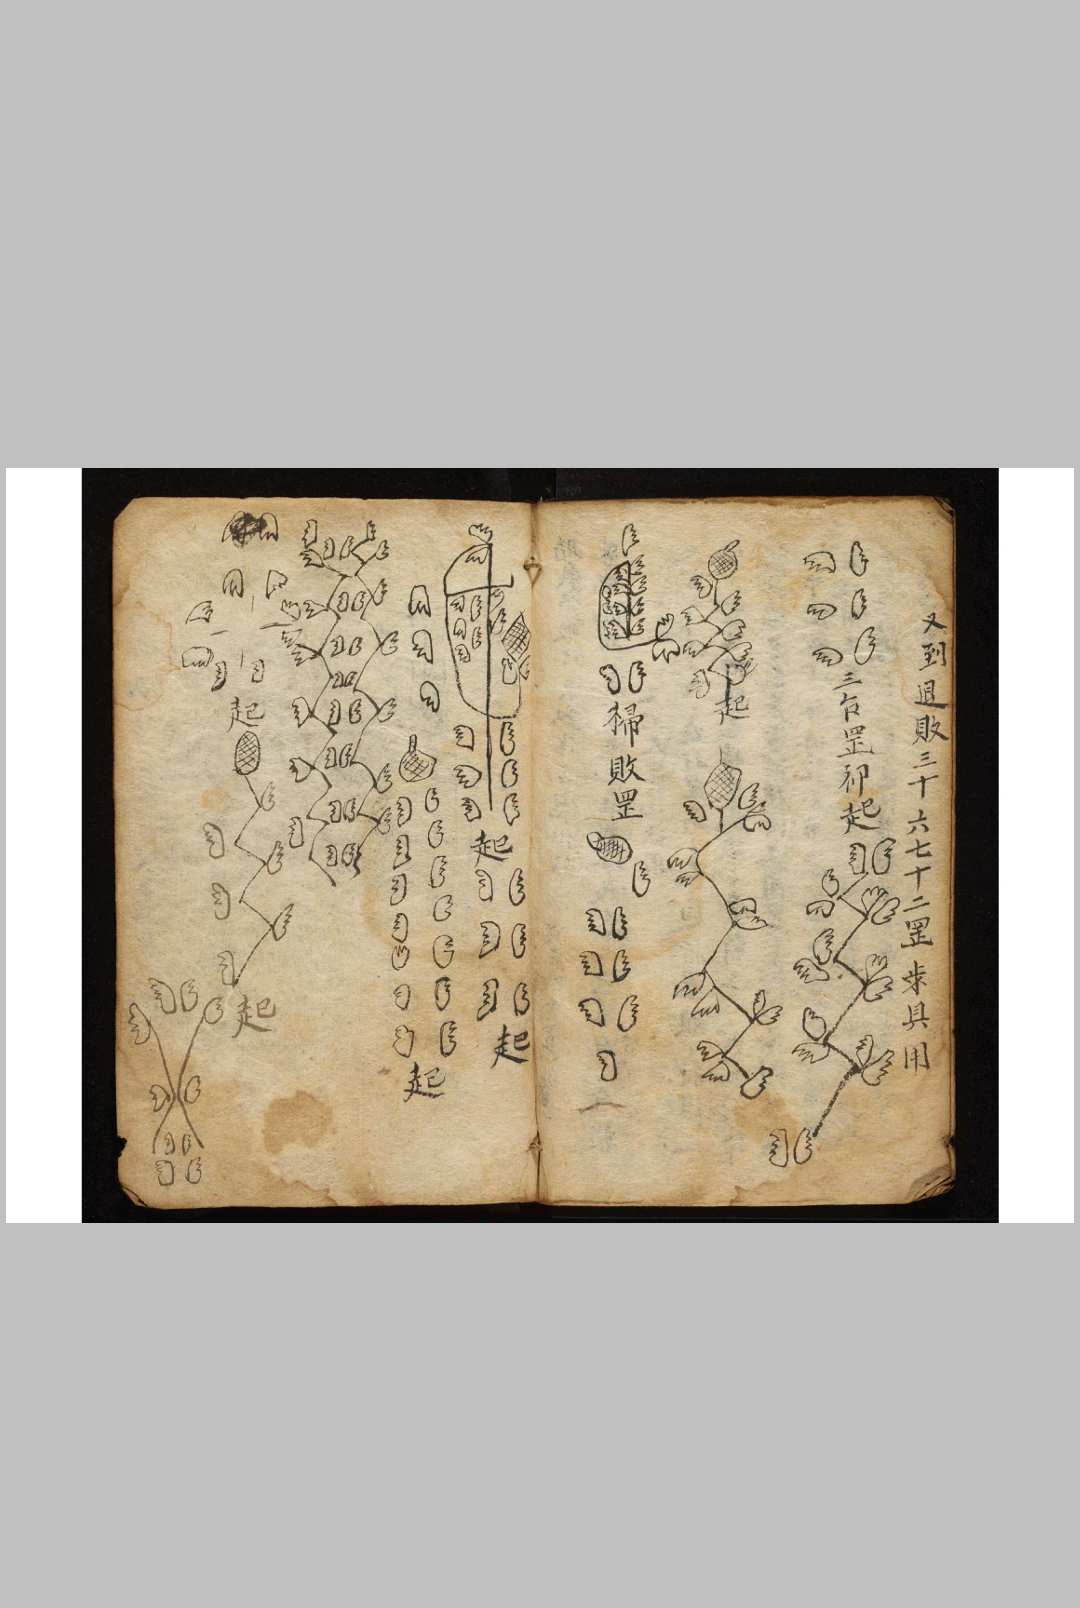 又到退敗三十六七十二罡步具用
三台罡卯起
起
掃敗罡
起
起
起
起
起